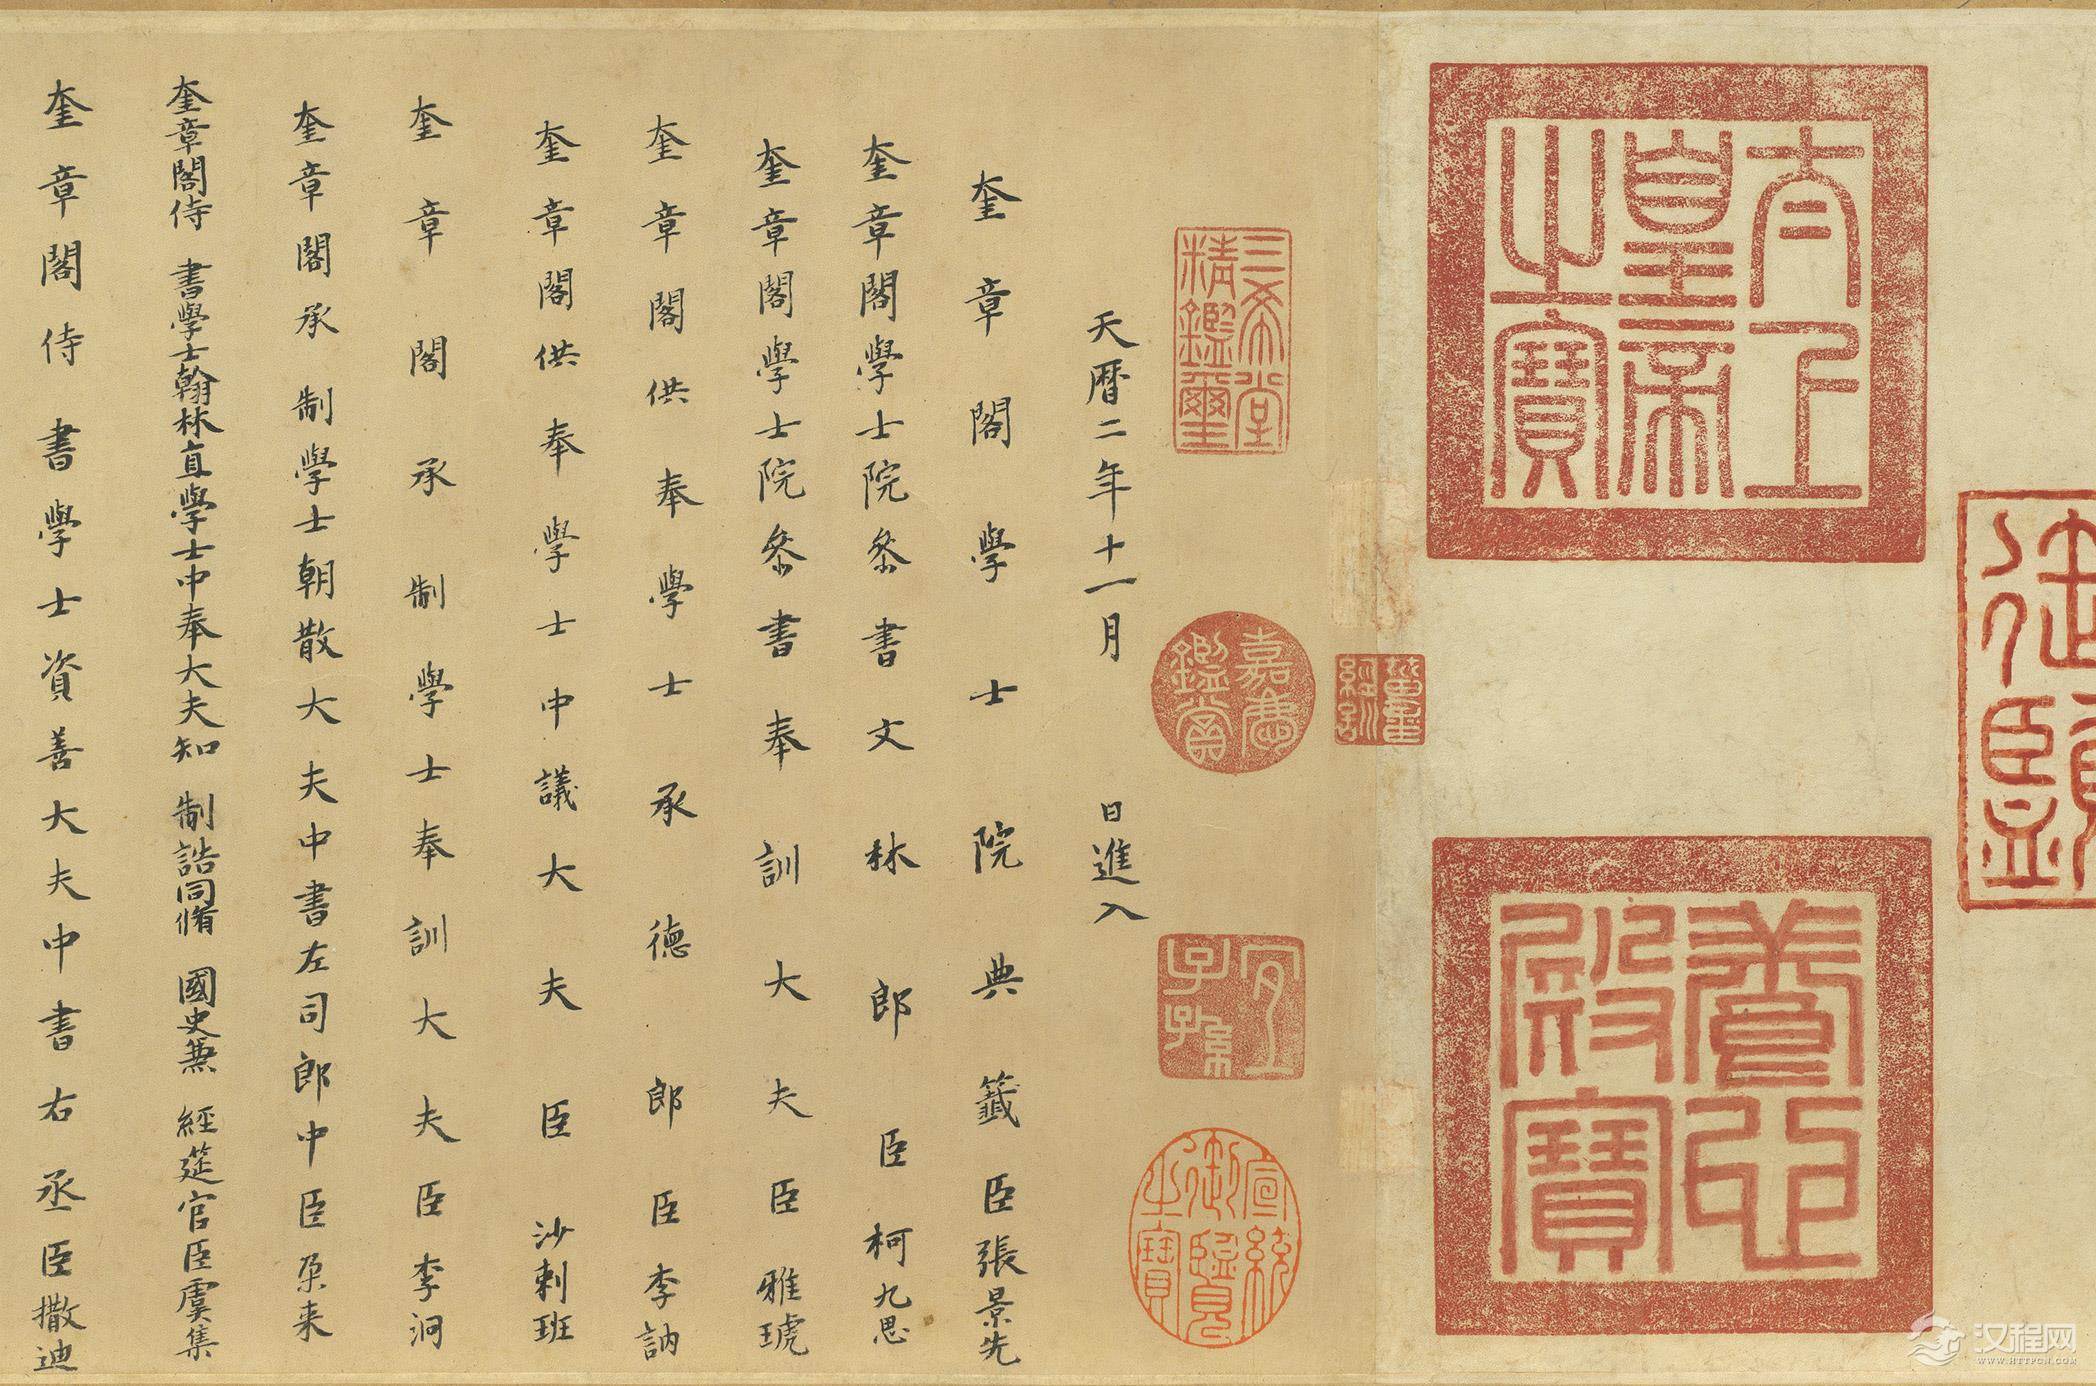 御覽
太上
皇帝
之寶
養心
殿寶
三希堂
精鑑璽
嘉慶
鑑賞
宜
子孫
宣統
御覽
之寶
天曆二年十一月　日進入
奎章閣學士院典籤臣張景先
奎章閣學士院參書文林郎臣柯九思
奎章閣學士院參書奉訓大夫臣雅琥
奎章閣供奉學士承德郎臣李訥
奎章閣供奉學士中議大夫臣沙剌班
奎章閣承制學士奉訓大夫臣李泂
奎章閣承制學士朝散大夫中書左司郎中臣朶来
奎章閣侍書學士翰林直學士中奉大夫知制誥同脩國史兼經筵官臣虞集
奎章閣侍書學士資善大夫中書右丞臣撒迪
汉程网
WWW.HTTPCN.COM